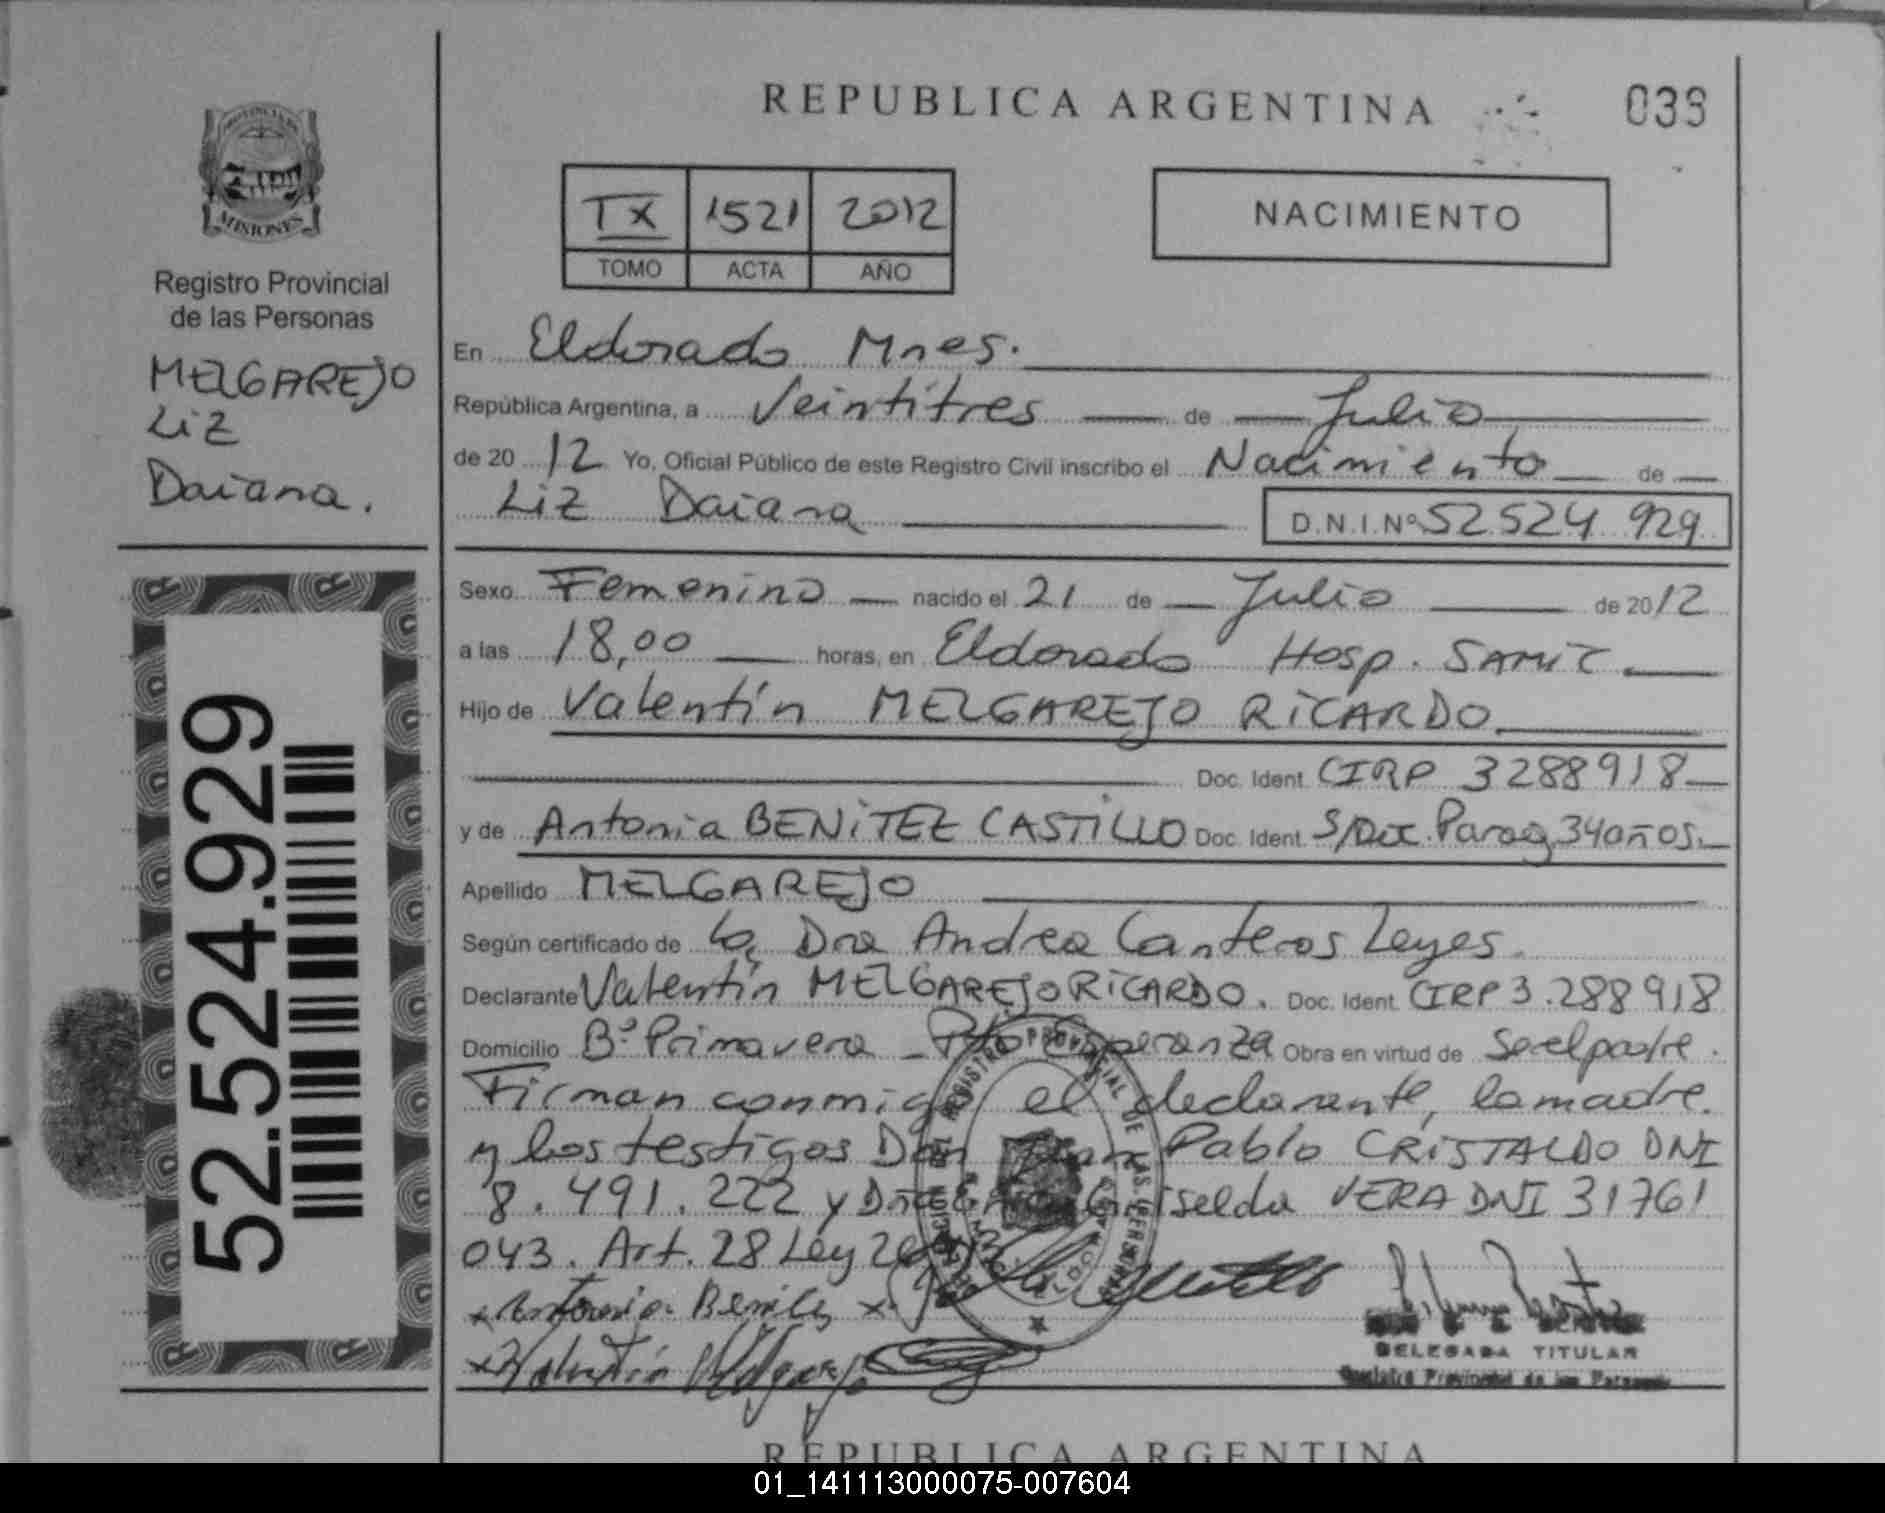 REPUBLICA ARGENTINA
039
PROVINCIA DE
MISIONES
Registro Provincial
de las Personas
MELGAREJO
Liz
Daiana.
52.524.929
TX 1521 2012
TOMO ACTA AÑO
NACIMIENTO
En Eldorado Mnes.
República Argentina, a Veintitres de Julio
de 20 12 Yo, Oficial Público de este Registro Civil inscribo el Nacimiento de
Liz Daiana D.N.I.Nº 52.524 929
Sexo Femenino nacido el 21 de Julio de 2012
a las 18,00 horas, en Eldorado Hosp. SAMIC.
Hijo de Valentín MELGAREJO RICARDO
Doc. Ident. CIRP 3288918
y de Antonia BENITEZ CASTILLO Doc. Ident. S/Doc. Parag. 34años.
Apellido MELGAREJO
Según certificado de la Dra Andrea Canteros Leyes.
Declarante Valentín MELGAREJO RICARDO. Doc. Ident. CIRP 3.288918
Domicilio Bº Primavera - Pto Esperanza Obra en virtud de Ser el padre.
Firman conmigo el declarante, la madre.
y los testigos Don Juan Pablo CRISTALDO DNI
8.491.222 y Dña Griselda VERA DNI 31761
043. Art. 28 Ley
x Antonia Benitez x
x Valentín Melgarejo
REGISTRO PROVINCIAL DE LAS PERSONAS
DELEGADA TITULAR
Registro Provincial de las Personas
REPUBLICA ARGENTINA
01_141113000075-007604